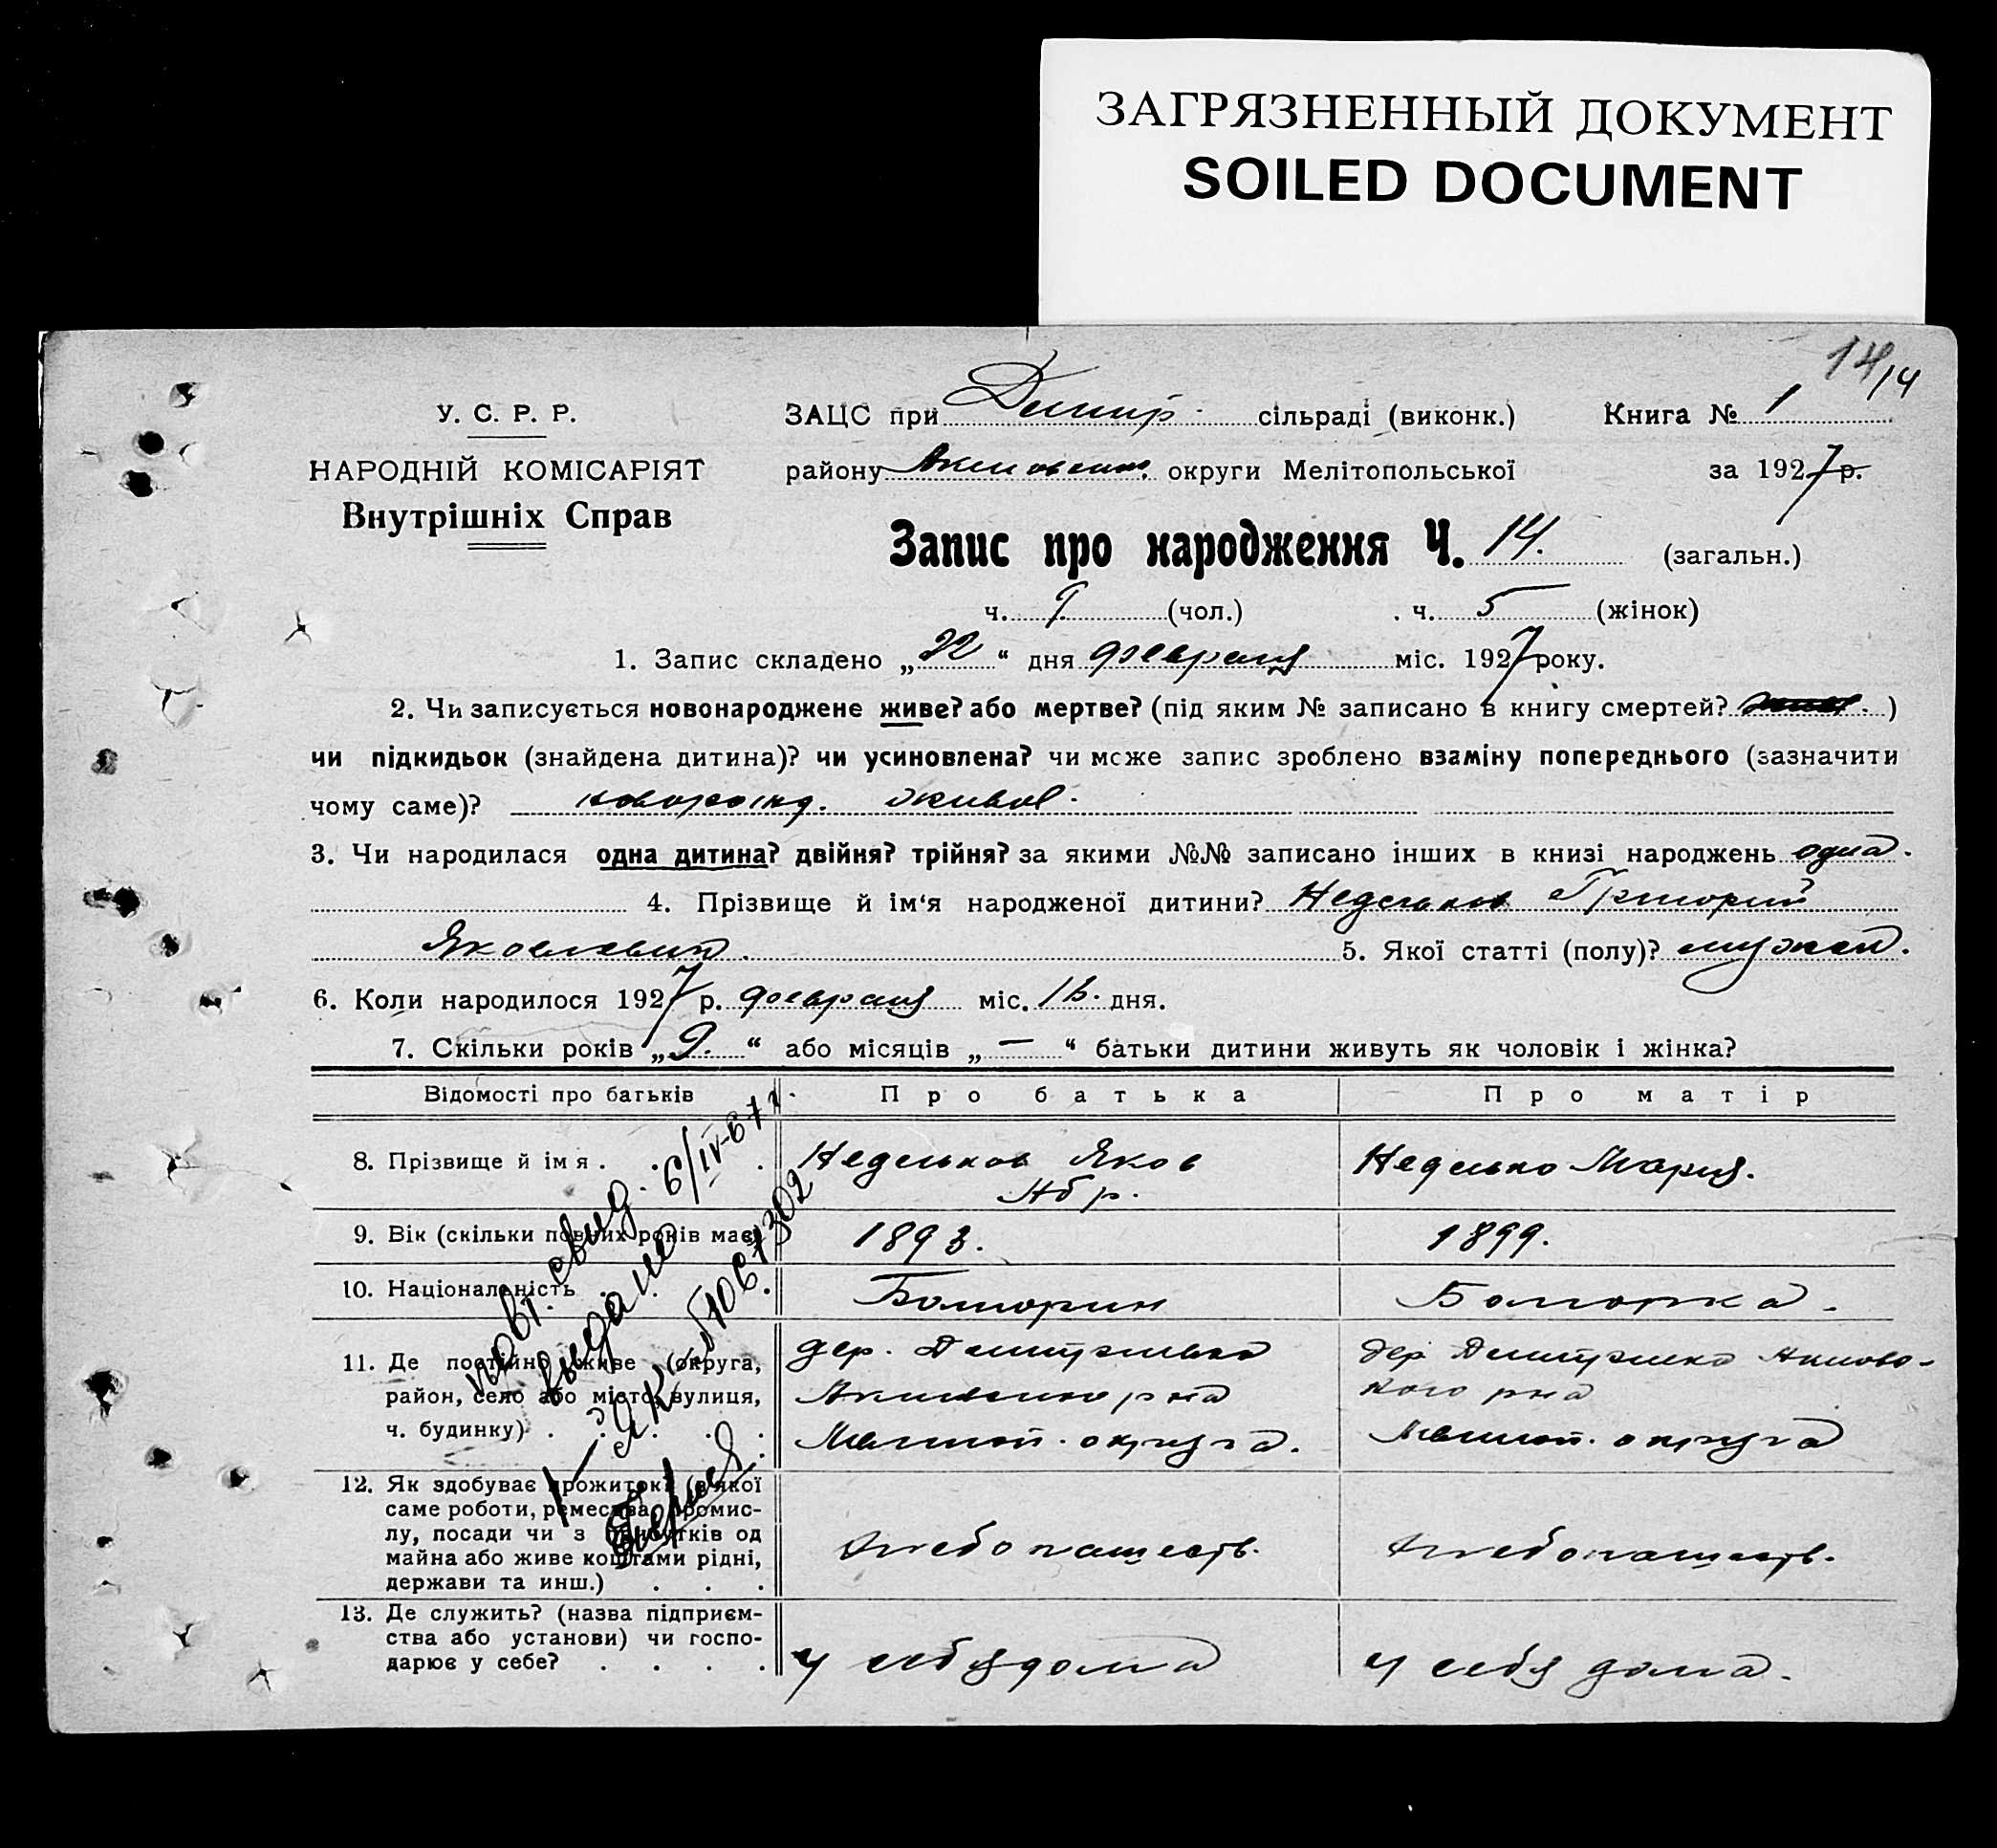 ЗАГРЯЗНЕННЫЙ ДОКУМЕНТ
SOILED DOCUMENT
14/14
У. С. Р. Р.
НАРОДНІЙ КОМІСАРІЯТ
Внутрішніх Справ
ЗАЦС при Димитр. сільраді (виконк.) Книга № 1
району округи Мелітопольської за 1927 р.
Запис про народження Ч. 14. (загальн.)
ч. 9. (чол.) ч. 5 (жінок)
1. Запис складено „22“ дня февраля міс. 1927 року.
2. Чи записується новонароджене живе? або мертве? (під яким № записано в книгу смертей? )
чи підкидьок (знайдена дитина)? чи усиновлена? чи може запис зроблено взаміну попереднього (зазначити
чому саме)? новорожд. живой.
3. Чи народилася одна дитина? двійня? трійня? за якими №№ записано інших в книзі народжень одна.
4. Прізвище й ім‘я народженої дитини? Недельков Григорий
Яковлевич. 5. Якої статті (полу)? мужской.
6. Коли народилося 1927 р. февраля міс. дня.
7. Скільки років „9.“ або місяців „—“ батьки дитини живуть як чоловік і жінка?
Відомості про батьків Про батька Про матір
8. Прізвище й ім я . Недельков Яков Неделько Мария.
9. Вік (скільки повних років має) 1893. 1899.
10. Національність Болгарин Болгарка.
11. Де постійно живе (округа,
район, село або місто, вулиця,
ч. будинку) .
дер.
Мелитоп. округа.
дер
Мелитоп. округа
12. Як здобуває прожиток? (з якої
саме роботи, ремества, промис-
лу, посади чи з прибутків од
майна або живе коштами рідні,
держави та инш.) . . .
хлебопашеств. хлебопашеств.
13. Де служить? (назва підприєм-
ства або установи) чи госпо-
дарює у себе? . . . .
у себя дома у себя дома.
повт. свид. 6/IV-67 г.
видано